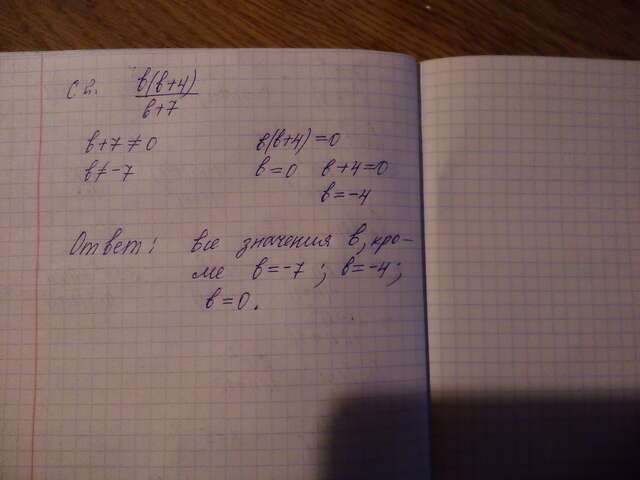 С в. в(в+4)
в+7
в+7≠0 в(в+4)=0
в≠-7 в=0 в+4=0
в=-4
Ответ: все значения в, кро-
ме в=-7; в=-4;
в=0.